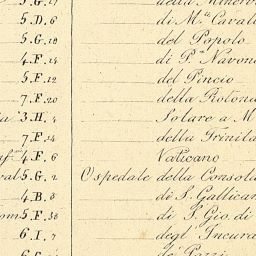 5.G.17 della Minerva
5.D.6 di M.ª Caval
5.G.18 del Popolo
4.F.14 di P.ª Navon
5.F.12 del Pincio
7.F.20 della Roton
3.H.4 Solare a M
7.F.14 della Trinita
4.F.6 Vaticano
5.G.2 Ospedale della Consol
4.B.8 di S. Gallican
5.F.38 di S. Gio. di
6.I.7 degl' Incura
de' Pazzi